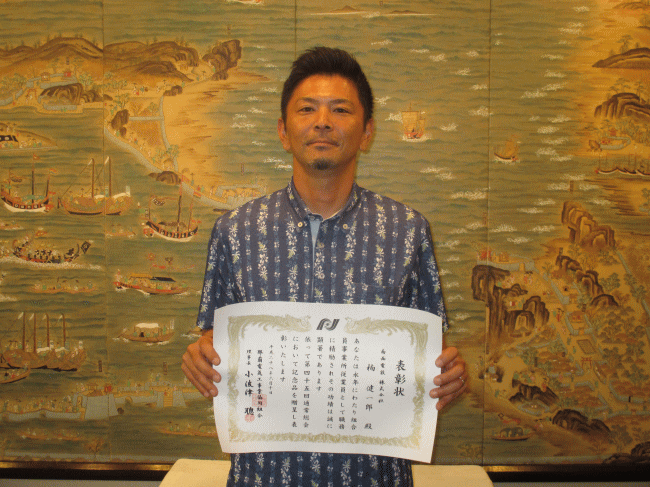 表彰状
南西電設 株式会社
楠 健一郎 殿
あなたは永年にわたり組合
員事業所従業員として職務
に精励されその功績は誠に
顕著であります
依って第四十五回通常総会
において記念品を贈呈し表
彰いたします
那覇電気工事業協同組合
理事長 小波津 聰